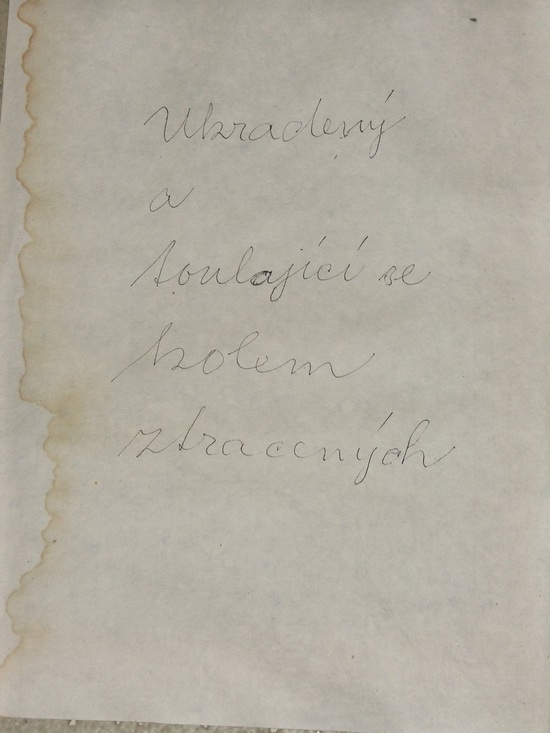 Ukradený
a
toulající se
kolem
ztracených